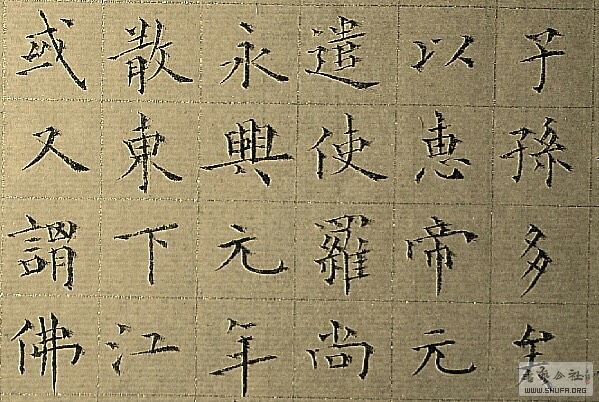 子孫多
以恵帝元
遣使羅尚
永興元年
散東下江
或又謂佛
公社
WWW.SHUFA.ORG